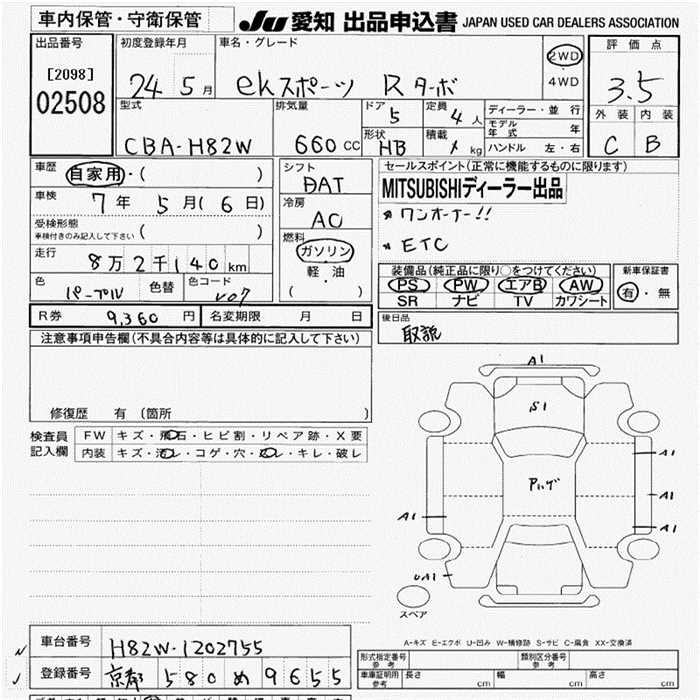 車内保管・守衛保管
JU 愛知 出品申込書 JAPAN USED CAR DEALERS ASSOCIATION
出品番号 初度登録年月 車名・グレード 評価点
[2098]
02508
24 5月 ekスポーツ Rターボ
2WD
4WD
3.5
外装 内装
C B
型式 排気量 ドア 定員 ディーラー・並行
CBA-H82W 660cc 5 4人
モデル年式 年
形状 積載 ハンドル 左・右
HB kg
車歴 自家用・( )
シフト DAT
セールスポイント(正常に機能するものに限ります)
MITSUBISHIディーラー出品
車検 7年5月(6日)
冷房 AC
ワンオーナー!!
受検形態
車検付きのみ記入して下さい ( )
燃料 ガソリン
軽・油
( )
ETC
走行 8万2千140km
装備品(純正品に限り○をつけてください) 新車保証書
PS PW エアB AW 有・無
SR ナビ TV カワシート
色 パープル 色替 色コード V07
R券 9,360円 名変期限 月 日
後日品
取説
注意事項申告欄(不具合内容等は具体的に記入して下さい)
修復歴 有(箇所 )
検査員
記入欄
FW キズ・飛石・ヒビ割・リペア跡・X要
内装 キズ・汚レ・コゲ・穴・スレ・キレ・破レ
A1
S1
A1
A1
A1
A1
UA1
スペア
A-キズ E-エクボ U-凹み W-補修跡 S-サビ C-腐食 XX-交換済
車台番号 H82W-1202755
登録番号 京都 580 め 9655
形式指定番号 参考 類別区分番号 参考
車庫証明用 参考 長さ cm 幅 cm 高さ cm